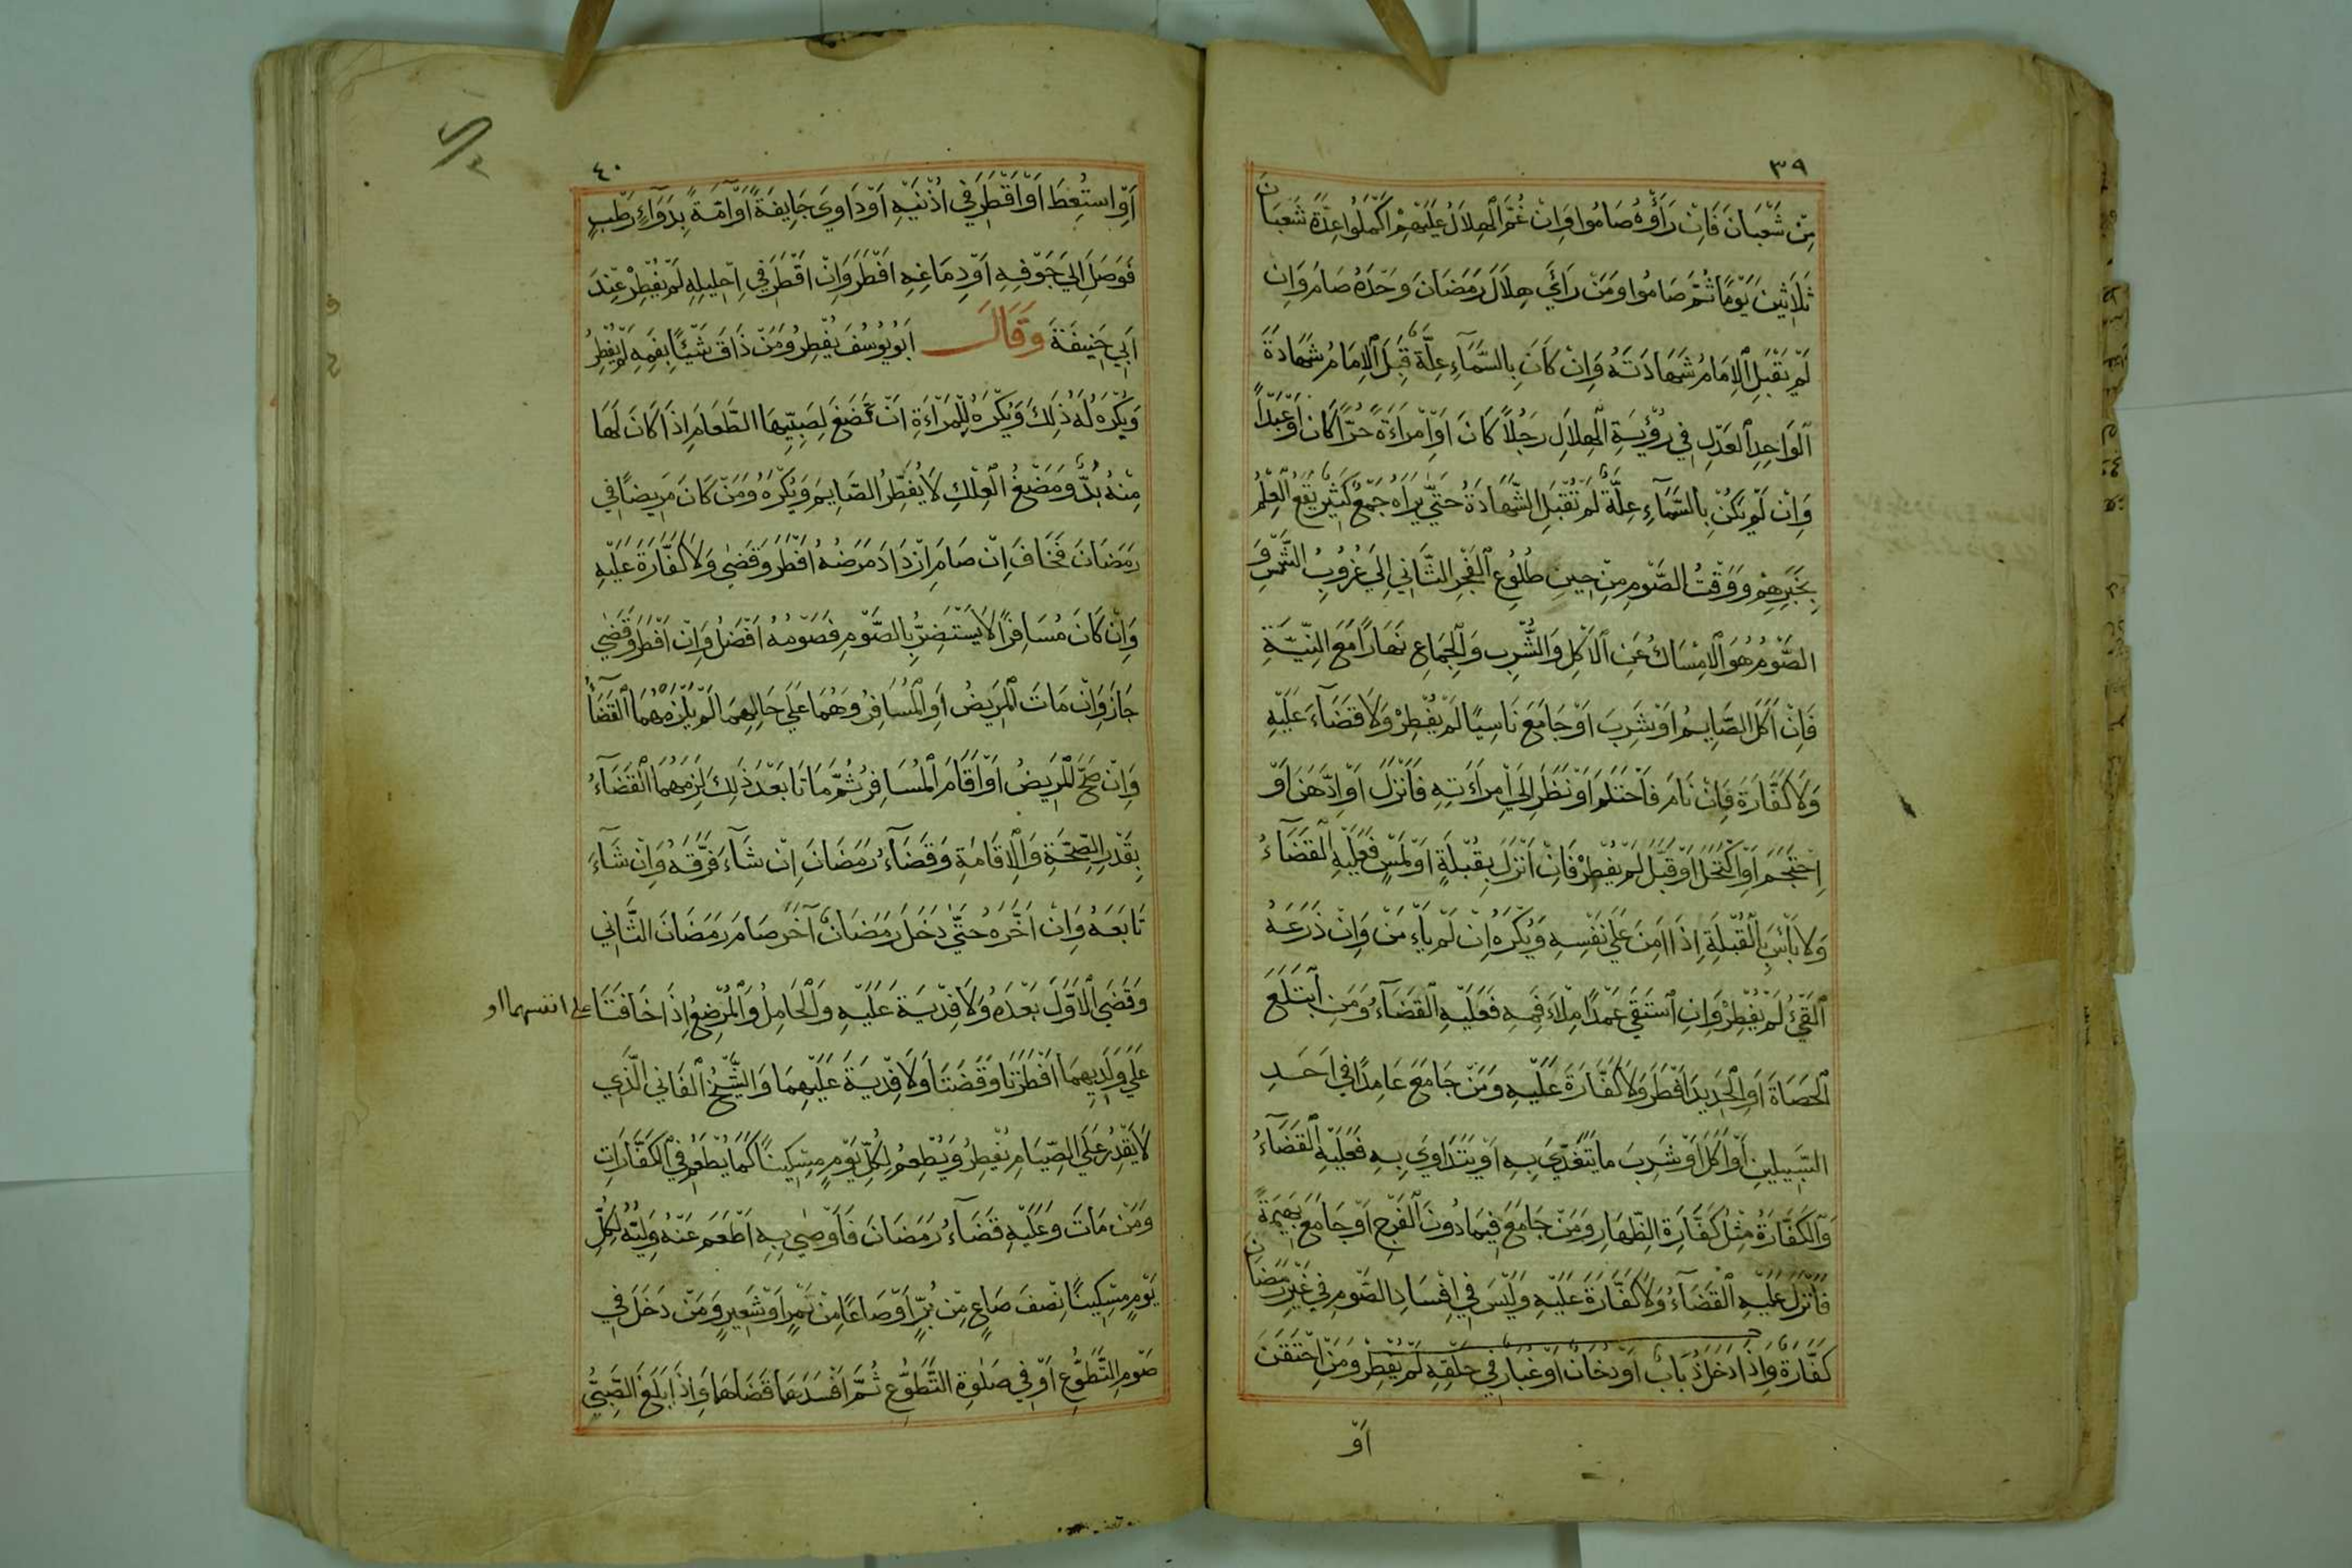 ٣٩
مِنْ شَعْبَانَ فَاِنْ رَأَوْهُ صَامُوا وَاِنْ غُمَّ الْهِلَالُ عَلَيْهِمْ اَكْمَلُوا عِدَّةَ شَعْبَانَ
ثَلَاثِينَ يَوْمًا ثُمَّ صَامُوا وَمَنْ رَاَيَ هِلَالَ رَمَضَانَ وَحْدَهُ صَامَ وَاِنْ
لَمْ يَقْبَلِ الْاِمَامُ شَهَادَتَهُ وَاِنْ كَانَ بِالسَّمَآءِ عِلَّةٌ قَبِلَ الْاِمَامُ شَهَادَةَ
الْوَاحِدِ الْعَدْلِ فِي رُؤْيَةِ الْهِلَالِ رَجُلًا كَانَ اَوْ اَمْرَاَةً حُرًّا كَانَ اَوْ عَبْدًا
وَاِنْ لَمْ يَكُنْ بِالسَّمَآءِ عِلَّةٌ لَمْ تُقْبَلِ الشَّهَادَةُ حَتَّي يَرَاهُ جَمْعٌ كَثِيرٌ يَقَعُ الْعِلْمُ
بِخَبَرِهِمْ وَوَقْتُ الصَّوْمِ مِنْ حِينِ طُلُوعِ الْفَجْرِ الثَّانِي اِلَي غُرُوبِ الشَّمْسِ وَ
الصَّوْمُ هُوَ الْاِمْسَاكُ عَنِ الْاَكْلِ وَالشُّرْبِ وَالْجِمَاعِ نَهَارًا مَعَ النِّيَّةِ
فَاِنْ اَكَلَ الصَّايِمُ اَوْ شَرِبَ اَوْ جَامَعَ نَاسِيًا لَمْ يُفْطِرْ وَلَا قَضَآءَ عَلَيْهِ
وَلَا كَفَّارَةَ فَاِنْ نَامَ فَاَحْتَلَمَ اَوْ نَظَرَ اِلَي اِمْرَاَتِهِ فَاَنْزَلَ اَوْ اِدَّهَنَ اَوْ
اِحْتَجَمَ اَوِ اكْتَحَلَ اَوْ قَبَّلَ لَمْ يُفْطِرْ فَاِنْ اَنْزَلَ بِقُبْلَةٍ اَوْ لَمْسٍ فَعَلَيْهِ الْقَضَآءُ
وَلَا بَاْسَ بِالْقُبْلَةِ اِذَا اَمِنَ عَلَي نَفْسِهِ وَيُكْرَهُ اِنْ لَمْ يَاْمَنْ وَاِنْ ذَرَعَهُ
الْقَيْءُ لَمْ يُفْطِرْ وَاِنِ اسْتَقَي عَمْدًا مِلْاَ فَمِهِ فَعَلَيْهِ الْقَضَآءُ وَمَنِ ابْتَلَعَ
الْحَصَاةَ اَوِ الْحَدِيدَ اَفْطَرَ وَلَا كَفَّارَةَ عَلَيْهِ وَمَنْ جَامَعَ عَامِدًا فِي اَحَدِ
السَّبِيلَيْنِ اَوْ اَكَلَ اَوْ شَرِبَ مَا يَتَغَدَّي بِهِ اَوْ يَتَدَاوَي بِهِ فَعَلَيْهِ الْقَضَآءُ
وَالْكَفَّارَةُ مِثْلُ كَفَّارَةِ الظِّهَارِ وَمَنْ جَامَعَ فِيمَا دُونَ الْفَرْجِ اَوْ جَامَعَ بَهِيمَةً
فَاَنْزَلَ عَلَيْهِ الْقَضَآءُ وَلَا كَفَّارَةَ عَلَيْهِ وَلَيْسَ فِي اِفْسَادِ الصَّوْمِ فِي غَيْرِ رَمَضَانَ
كَفَّارَةٌ وَاِذَا دَخَلَ ذُبَابٌ اَوْ دُخَانٌ اَوْ غُبَارٌ فِي حَلْقِهِ لَمْ يُفْطِرْ وَمَنِ احْتَقَنَ
اَوْ
٤٠
اَوِ اسْتُعِطَ اَوْ اَقْطَرَ فِي اُذْنَيْهِ اَوْ دَاوَي جَايِفَةً اَوْ آمَّةً بِدَوَآءٍ رَطْبٍ
فَوَصَلَ اِلَي جَوْفِهِ اَوْ دِمَاغِهِ اَفْطَرَ وَاِنْ اَقْطَرَ فِي اِحْلِيلِهِ لَمْ يُفْطِرْ عِنْدَ
اَبِي حَنِيفَةَ وَقَالَ اَبُو يُوسُفَ يُفْطِرُ وَمَنْ ذَاقَ شَيْئًا بِفَمِهِ لَمْ يُفْطِرْ
وَيُكْرَهُ لَهُ ذٰلِكَ وَيُكْرَهُ لِلْمَرْاَةِ اَنْ تَمْضَغَ لِصَبِيِّهَا الطَّعَامَ اِذَا كَانَ لَهَا
مِنْهُ بُدٌّ وَمَضْغُ الْعِلْكِ لَا يُفْطِرُ الصَّايِمَ وَيُكْرَهُ وَمَنْ كَانَ مَرِيضًا فِي
رَمَضَانَ فَخَافَ اِنْ صَامَ اِزْدَادَ مَرَضُهُ اَفْطَرَ وَقَضَي وَلَا كَفَّارَةَ عَلَيْهِ
وَاِنْ كَانَ مُسَافِرًا لَا يَسْتَضِرُّ بِالصَّوْمِ فَصَوْمُهُ اَفْضَلُ وَاِنْ اَفْطَرَ وَقَضَي
جَازَ وَاِنْ مَاتَ الْمَرِيضُ اَوِ الْمُسَافِرُ وَهُمَا عَلَي حَالِهِمَا لَمْ يَلْزَمْهُمَا الْقَضَآءُ
وَاِنْ صَحَّ الْمَرِيضُ اَوْ اَقَامَ الْمُسَافِرُ ثُمَّ مَاتَا بَعْدَ ذٰلِكَ لَزِمَهُمَا الْقَضَآءُ
بِقَدْرِ الصِّحَّةِ وَالْاِقَامَةِ وَقَضَآءُ رَمَضَانَ اِنْ شَآءَ فَرَّقَهُ وَاِنْ شَآءَ
تَابَعَهُ وَاِنْ اَخَّرَهُ حَتَّي دَخَلَ رَمَضَانٌ آخَرُ صَامَ رَمَضَانَ الثَّانِي
وَقَضَي الْاَوَّلَ بَعْدَهُ وَلَا فِدْيَةَ عَلَيْهِ وَالْحَامِلُ وَالْمُرْضِعُ اِذَا خَافَتَا على انفسهما او
عَلَي وَلَدِيهِمَا اَفْطَرَتَا وَقَضَتَا وَلَا فِدْيَةَ عَلَيْهِمَا وَالشَّيْخُ الْفَانِي الَّذِي
لَا يَقْدِرُ عَلَي الصِّيَامِ يُفْطِرُ وَيُطْعِمُ لِكُلِّ يَوْمٍ مِسْكِينًا كَمَا يُطْعِمُ فِي الْكَفَّارَاتِ
وَمَنْ مَاتَ وَعَلَيْهِ قَضَآءُ رَمَضَانَ فَاَوْصَي بِهِ اَطْعَمَ عَنْهُ وَلِيُّهُ لِكُلِّ
يَوْمٍ مِسْكِينًا نِصْفَ صَاعٍ مِنْ بُرٍّ اَوْ صَاعًا مِنْ تَمْرٍ اَوْ شَعِيرٍ وَمَنْ دَخَلَ فِي
صَوْمِ التَّطَوُّعِ اَوْ فِي صَلٰوةِ التَّطَوُّعِ ثُمَّ اَفْسَدَهَا قَضَاهَا وَاِذَا بَلَغَ الصَّبِيُّ